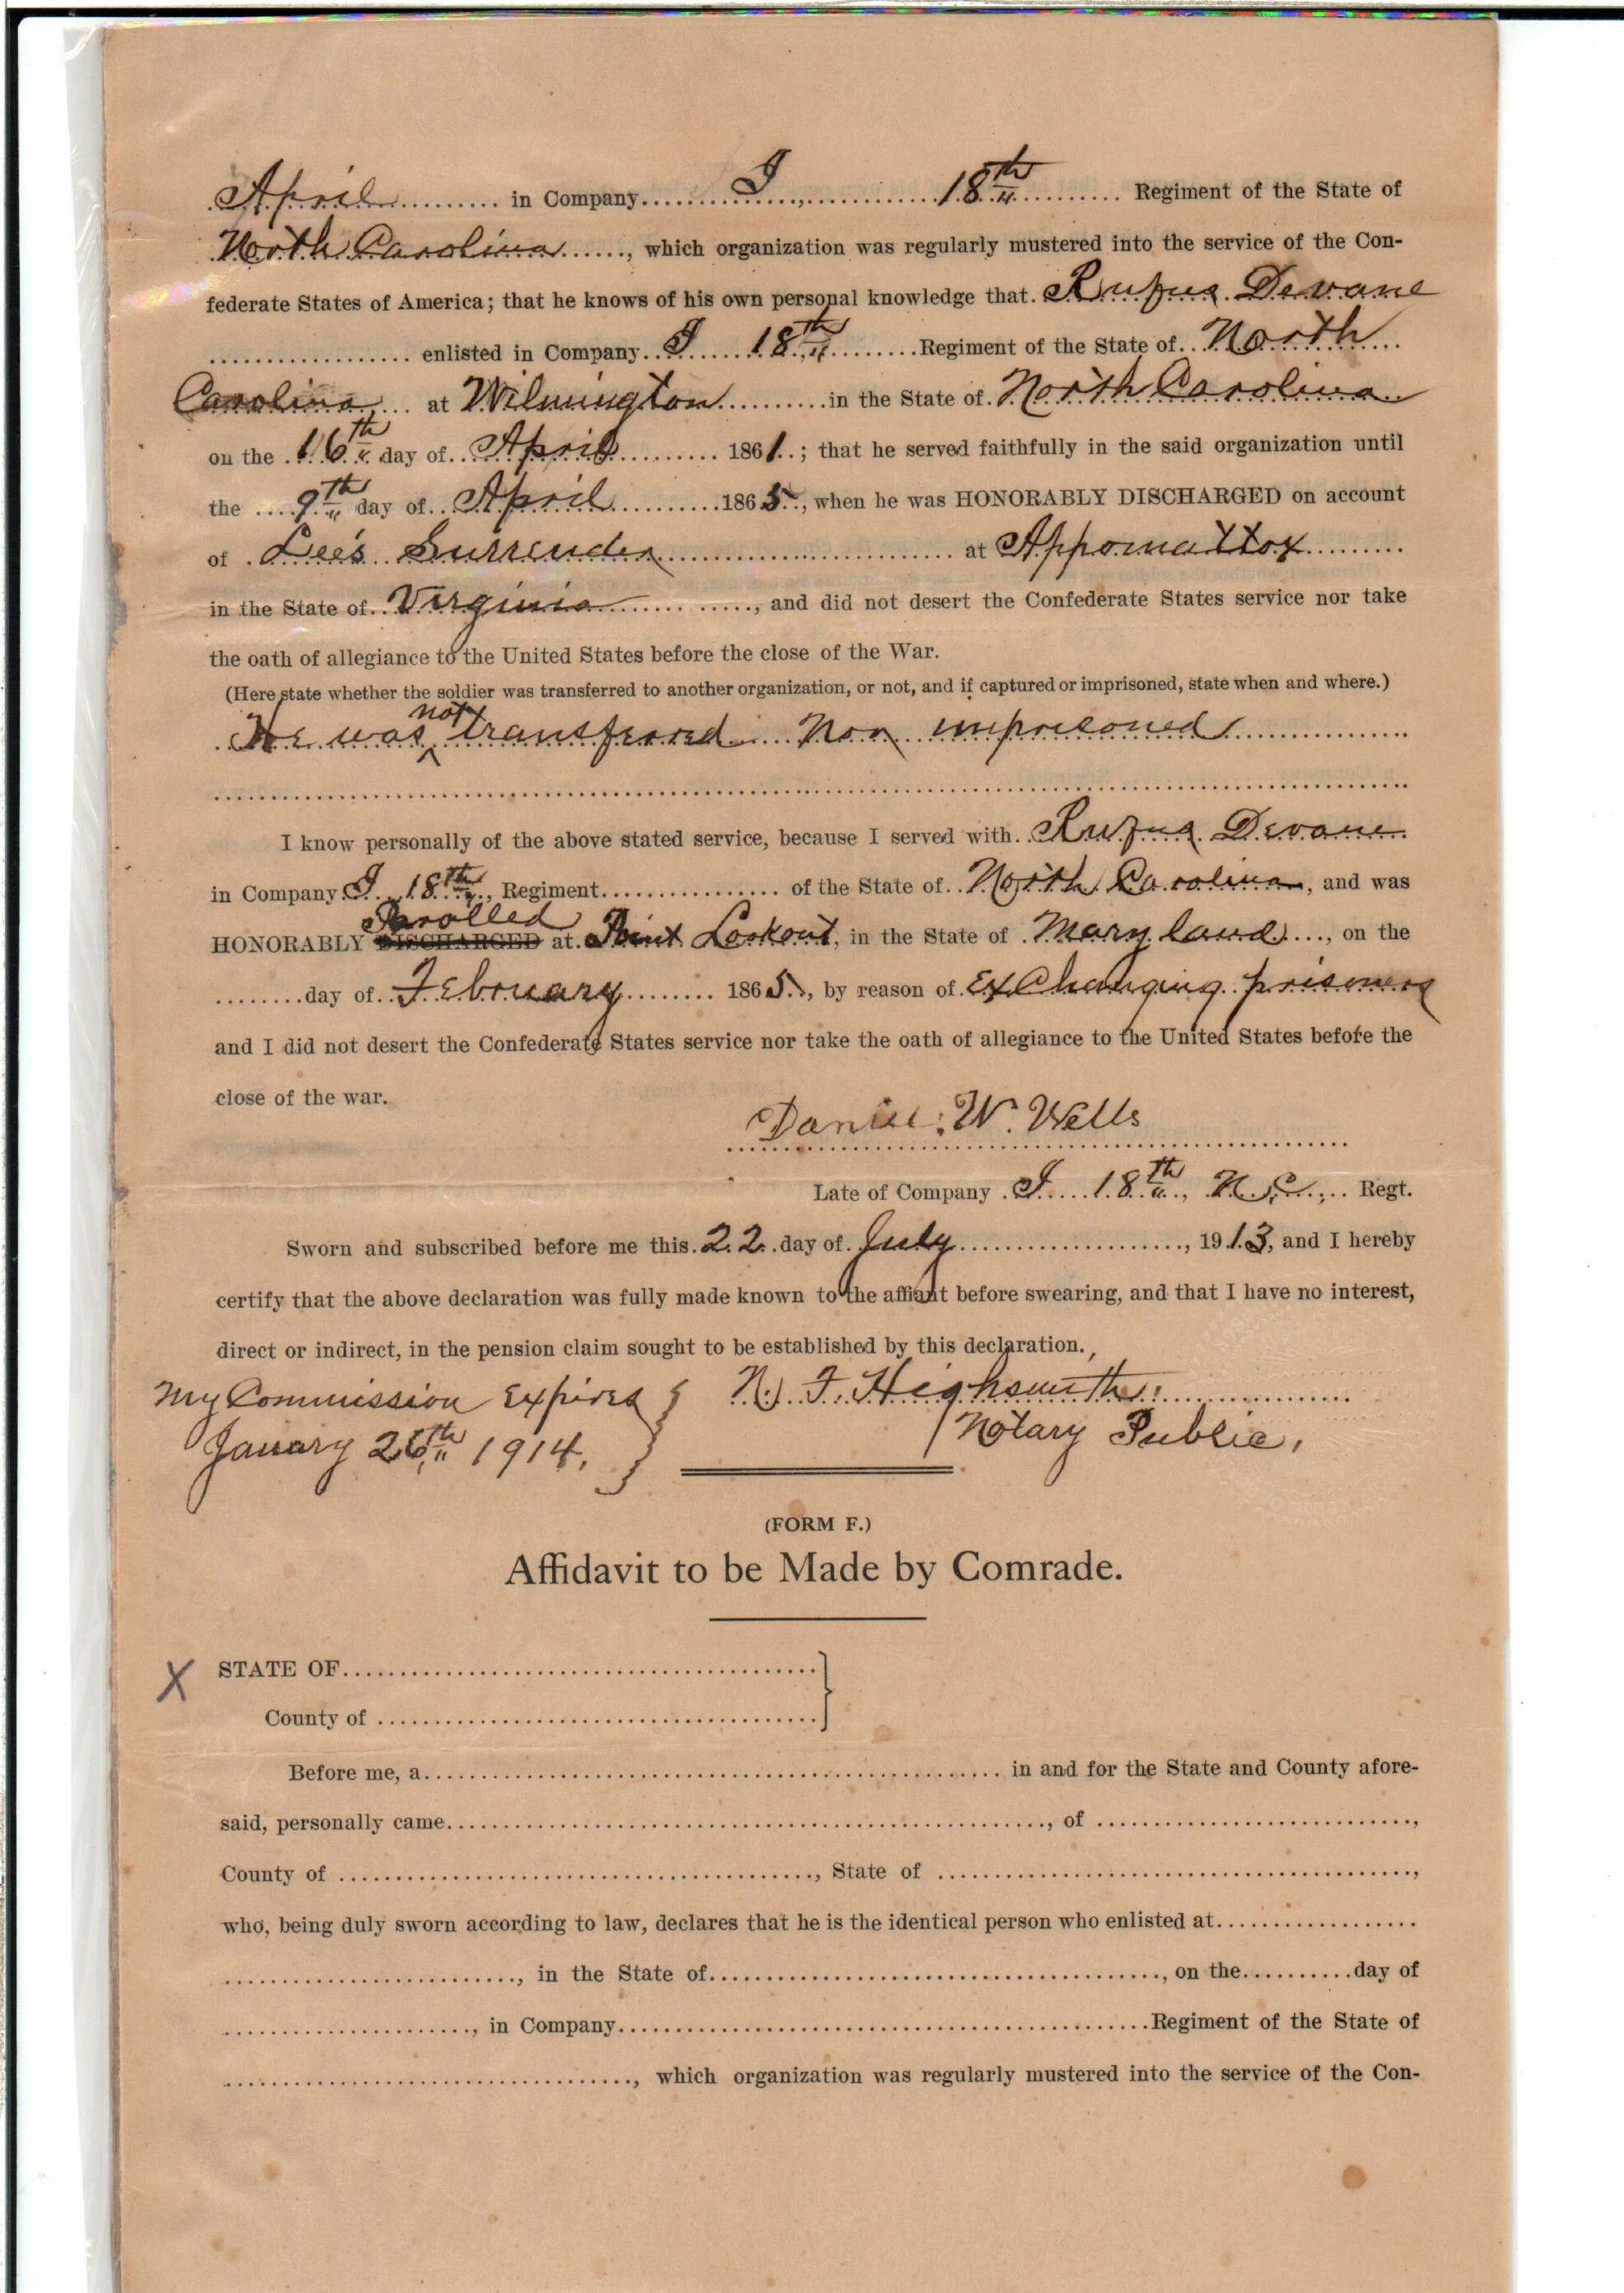 April in Company I, 18th Regiment of the State of
North Carolina, which organization was regularly mustered into the service of the Con-
federate States of America; that he knows of his own personal knowledge that Rufus Devane
enlisted in Company I 18th Regiment of the State of North
Carolina, at Wilmington in the State of North Carolina
on the 16th day of April 1861.; that he served faithfully in the said organization until
the 9th day of April 1865, when he was HONORABLY DISCHARGED on account
of Lee's Surrender at Appomattox
in the State of Virginia, and did not desert the Confederate States service nor take
the oath of allegiance to the United States before the close of the War.
(Here state whether the soldier was transferred to another organization, or not, and if captured or imprisoned, state when and where.)
He was not transferred Nor imprisoned
I know personally of the above stated service, because I served with Rufus Devane
in Company I 18th, Regiment of the State of North Carolina, and was
HONORABLY DISCHARGED Parolled at Point Lookout, in the State of Maryland, on the
day of February 1865, by reason of Exchanging prisoners
and I did not desert the Confederate States service nor take the oath of allegiance to the United States before the
close of the war.
Daniel W. Wells
Late of Company I 18th, N.C., Regt.
Sworn and subscribed before me this 22 day of July, 1913, and I hereby
certify that the above declaration was fully made known to the affiant before swearing, and that I have no interest,
direct or indirect, in the pension claim sought to be established by this declaration.
My Commission Expires
January 26th 1914.
N. F. Highsmith
Notary Public.
(FORM F.)
Affidavit to be Made by Comrade.
X STATE OF
County of
Before me, a in and for the State and County afore-
said, personally came, of,
County of, State of,
who, being duly sworn according to law, declares that he is the identical person who enlisted at
, in the State of, on the day of
, in Company Regiment of the State of
, which organization was regularly mustered into the service of the Con-